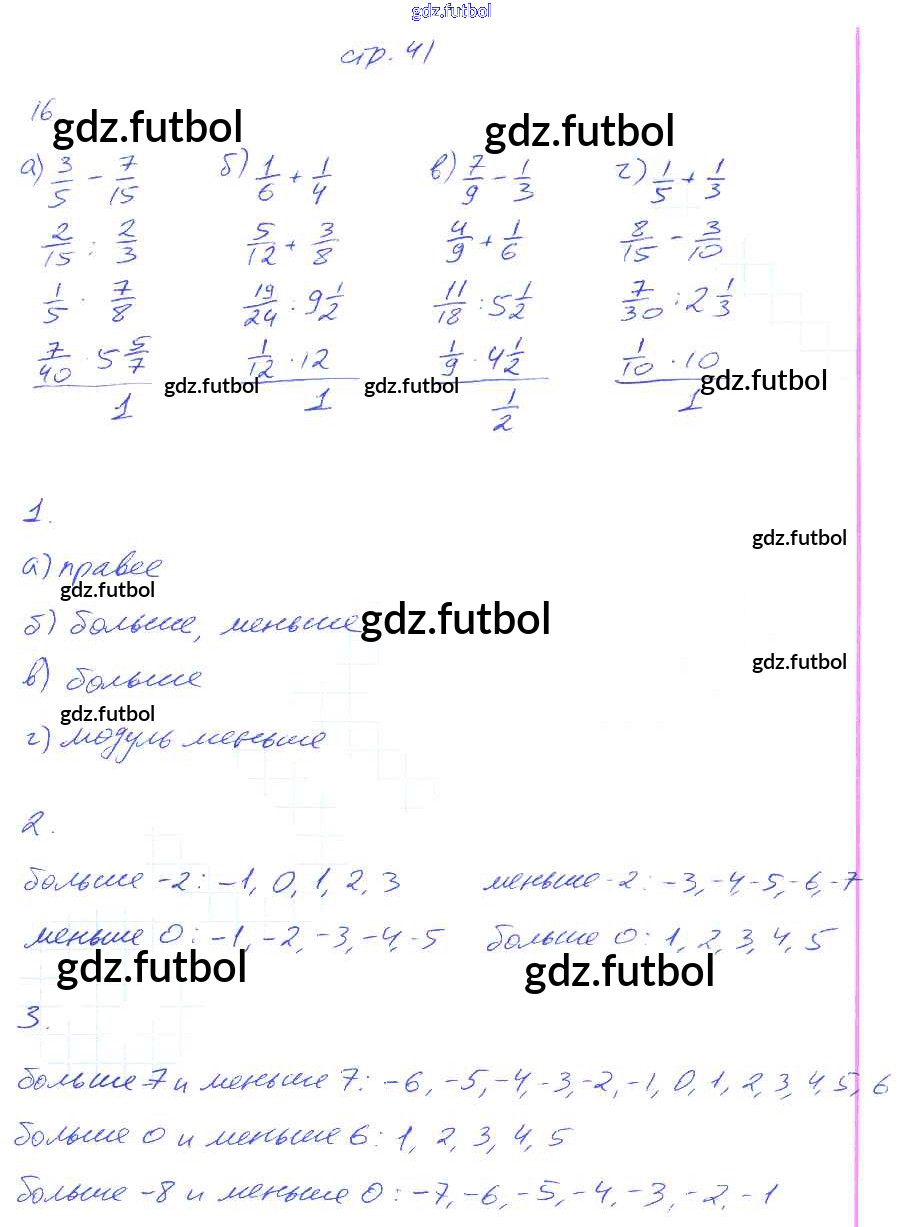 gdz.futbol
стр. 41
16
gdz.futbol gdz.futbol
а) 3/5 - 7/15 б) 1/6 + 1/4 в) 7/9 - 1/3 г) 1/5 + 1/3
2/15 : 2/3 5/12 + 3/8 4/9 + 1/6 8/15 - 3/10
1/5 · 7/8 19/24 : 9 1/2 11/18 : 5 1/2 7/30 : 2 1/3
7/40 · 5 5/7 1/12 · 12 1/9 · 4 1/2 1/10 · 10
gdz.futbol gdz.futbol gdz.futbol
1 1 1/2 1
1.
gdz.futbol
а) правее
gdz.futbol
б) больше, меньше gdz.futbol
gdz.futbol
в) больше
gdz.futbol
г) модуль меньше
2.
больше -2: -1, 0, 1, 2, 3 меньше -2: -3, -4, -5, -6, -7
меньше 0: -1, -2, -3, -4, -5 больше 0: 1, 2, 3, 4, 5
gdz.futbol gdz.futbol
3.
больше -7 и меньше 7: -6, -5, -4, -3, -2, -1, 0, 1, 2, 3, 4, 5, 6
больше 0 и меньше 6: 1, 2, 3, 4, 5
больше -8 и меньше 0: -7, -6, -5, -4, -3, -2, -1